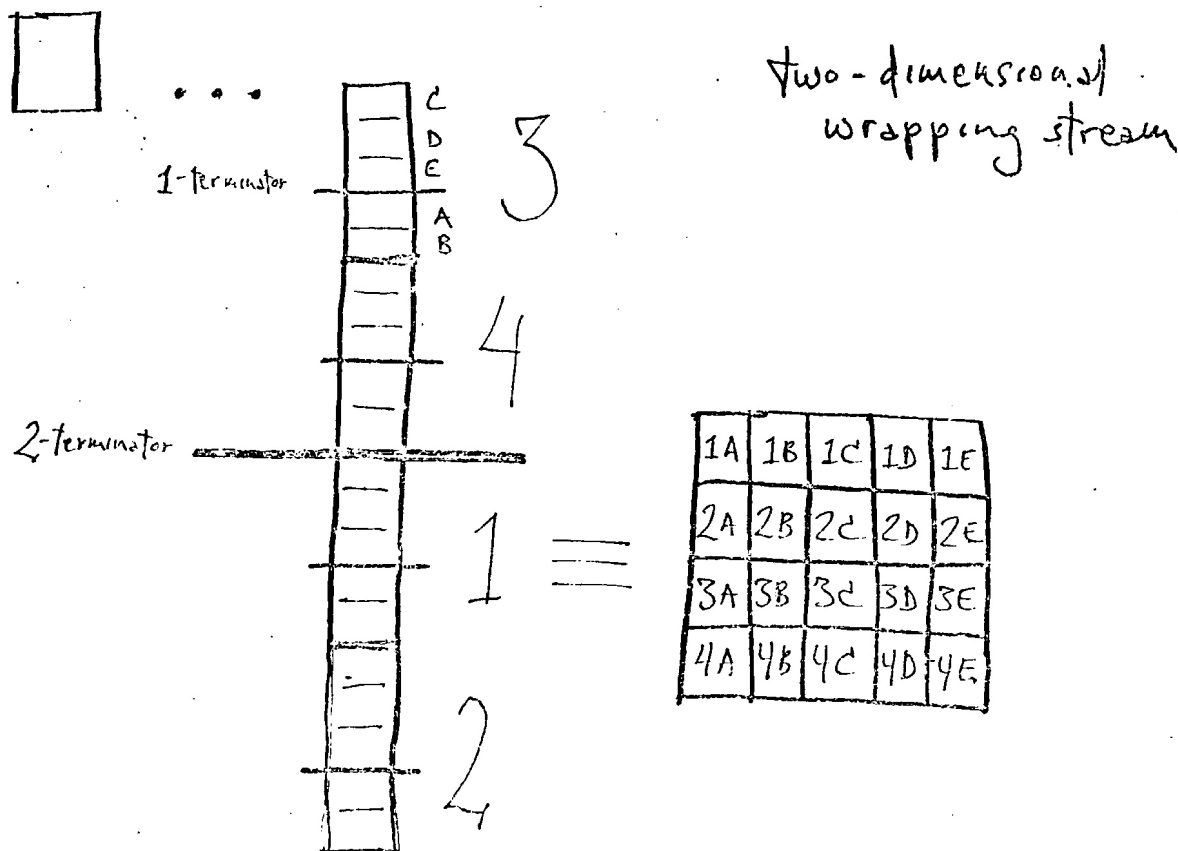 two-dimensional
wrapping stream
C
D
E
3
1-terminator
A
B
4
2-terminator
1
1A 1B 1C 1D 1E
2A 2B 2C 2D 2E
3A 3B 3C 3D 3E
4A 4B 4C 4D 4E
2